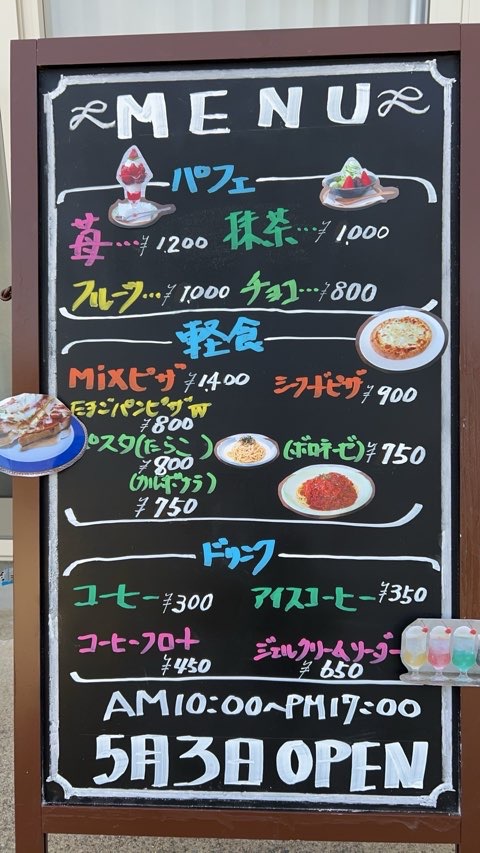 MENU
パフェ
苺…¥1,200 抹茶…¥1,000
フルーツ…¥1,000 チョコ…¥800
軽食
MiXピザ¥1,400 シーフードピザ¥900
たまごパンピザ
¥800
パスタ(たらこ) (ボロネーゼ)¥750
¥800
(カルボナラ)
¥750
ドリンク
コーヒー¥300 アイスコーヒー¥350
コーヒーフロート ジェルクリームソーダー
¥450 ¥650
AM10:00~PM17:00
5月3日OPEN